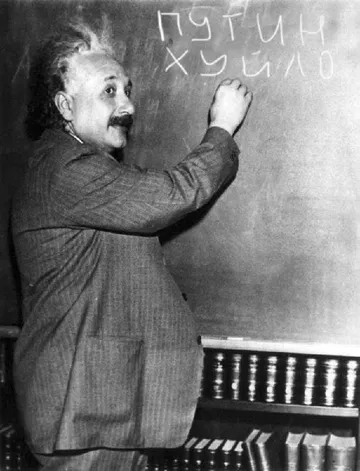 ПУТИН
ХУЙЛО